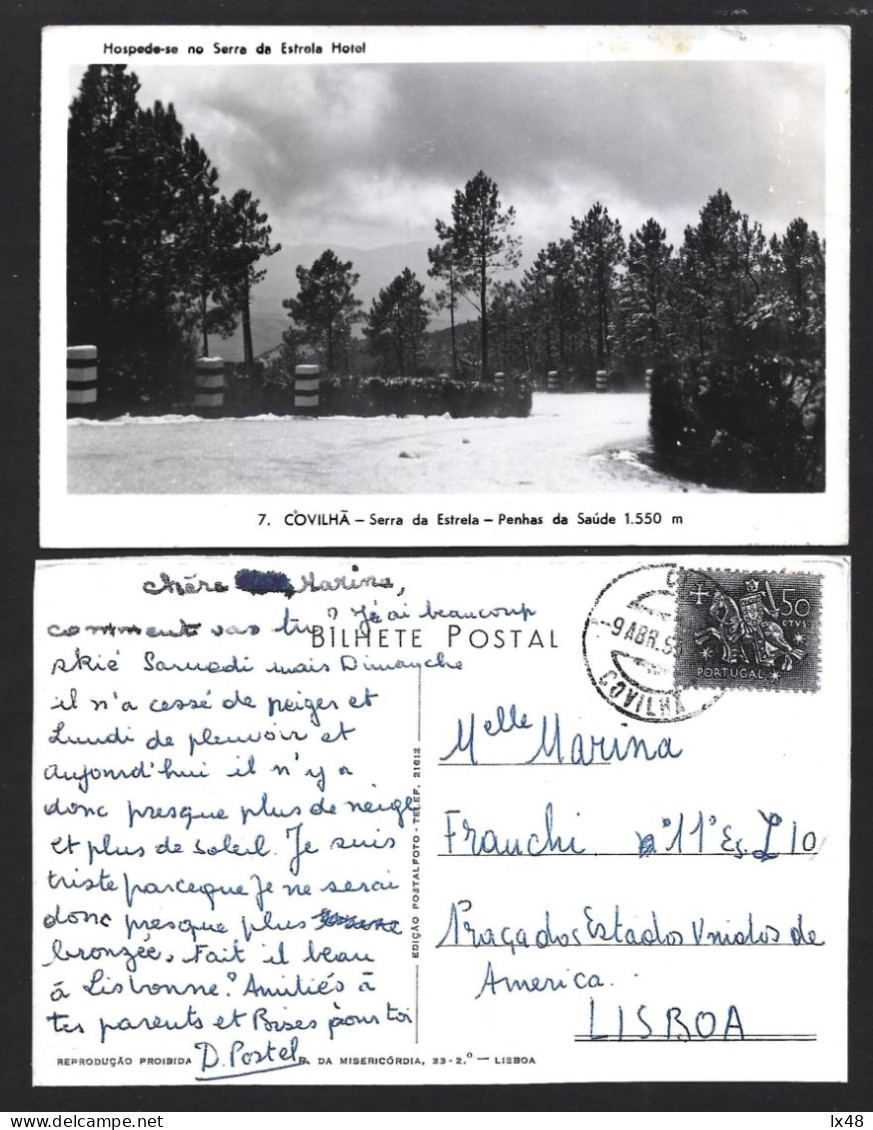 Hospede-se no Serra da Estrela Hotel
7. COVILHÃ – Serra da Estrela – Penhas da Saúde 1.550 m
chére Marina,
comment vas tu? J'é ai beaucoup
BILHETE POSTAL
skié Samedi mais Dimanche
il n'a cessé de neiger et
Lundi de pleuvoir et
aujourd'hui il n'y a
donc presque plus de neige
et plus de soleil. Je suis
triste parceque Je ne serai
donc presque plus
bronzée. Fait il beau
à Lisbonne? Amitiés à
tes parents et Bises pour toi
D. Postel
REPRODUÇÃO PROIBIDA
R. DA MISERICÓRDIA, 33-2.º — LISBOA
EDIÇÃO POSTALFOTO - TELEF. 21612
-9 ABR. 5
COVILHÃ
50
CTVS
PORTUGAL
Melle Marina
Franchi nº 11º Es. L 10
Praça dos Estados Unidos de
America.
LISBOA
lx48